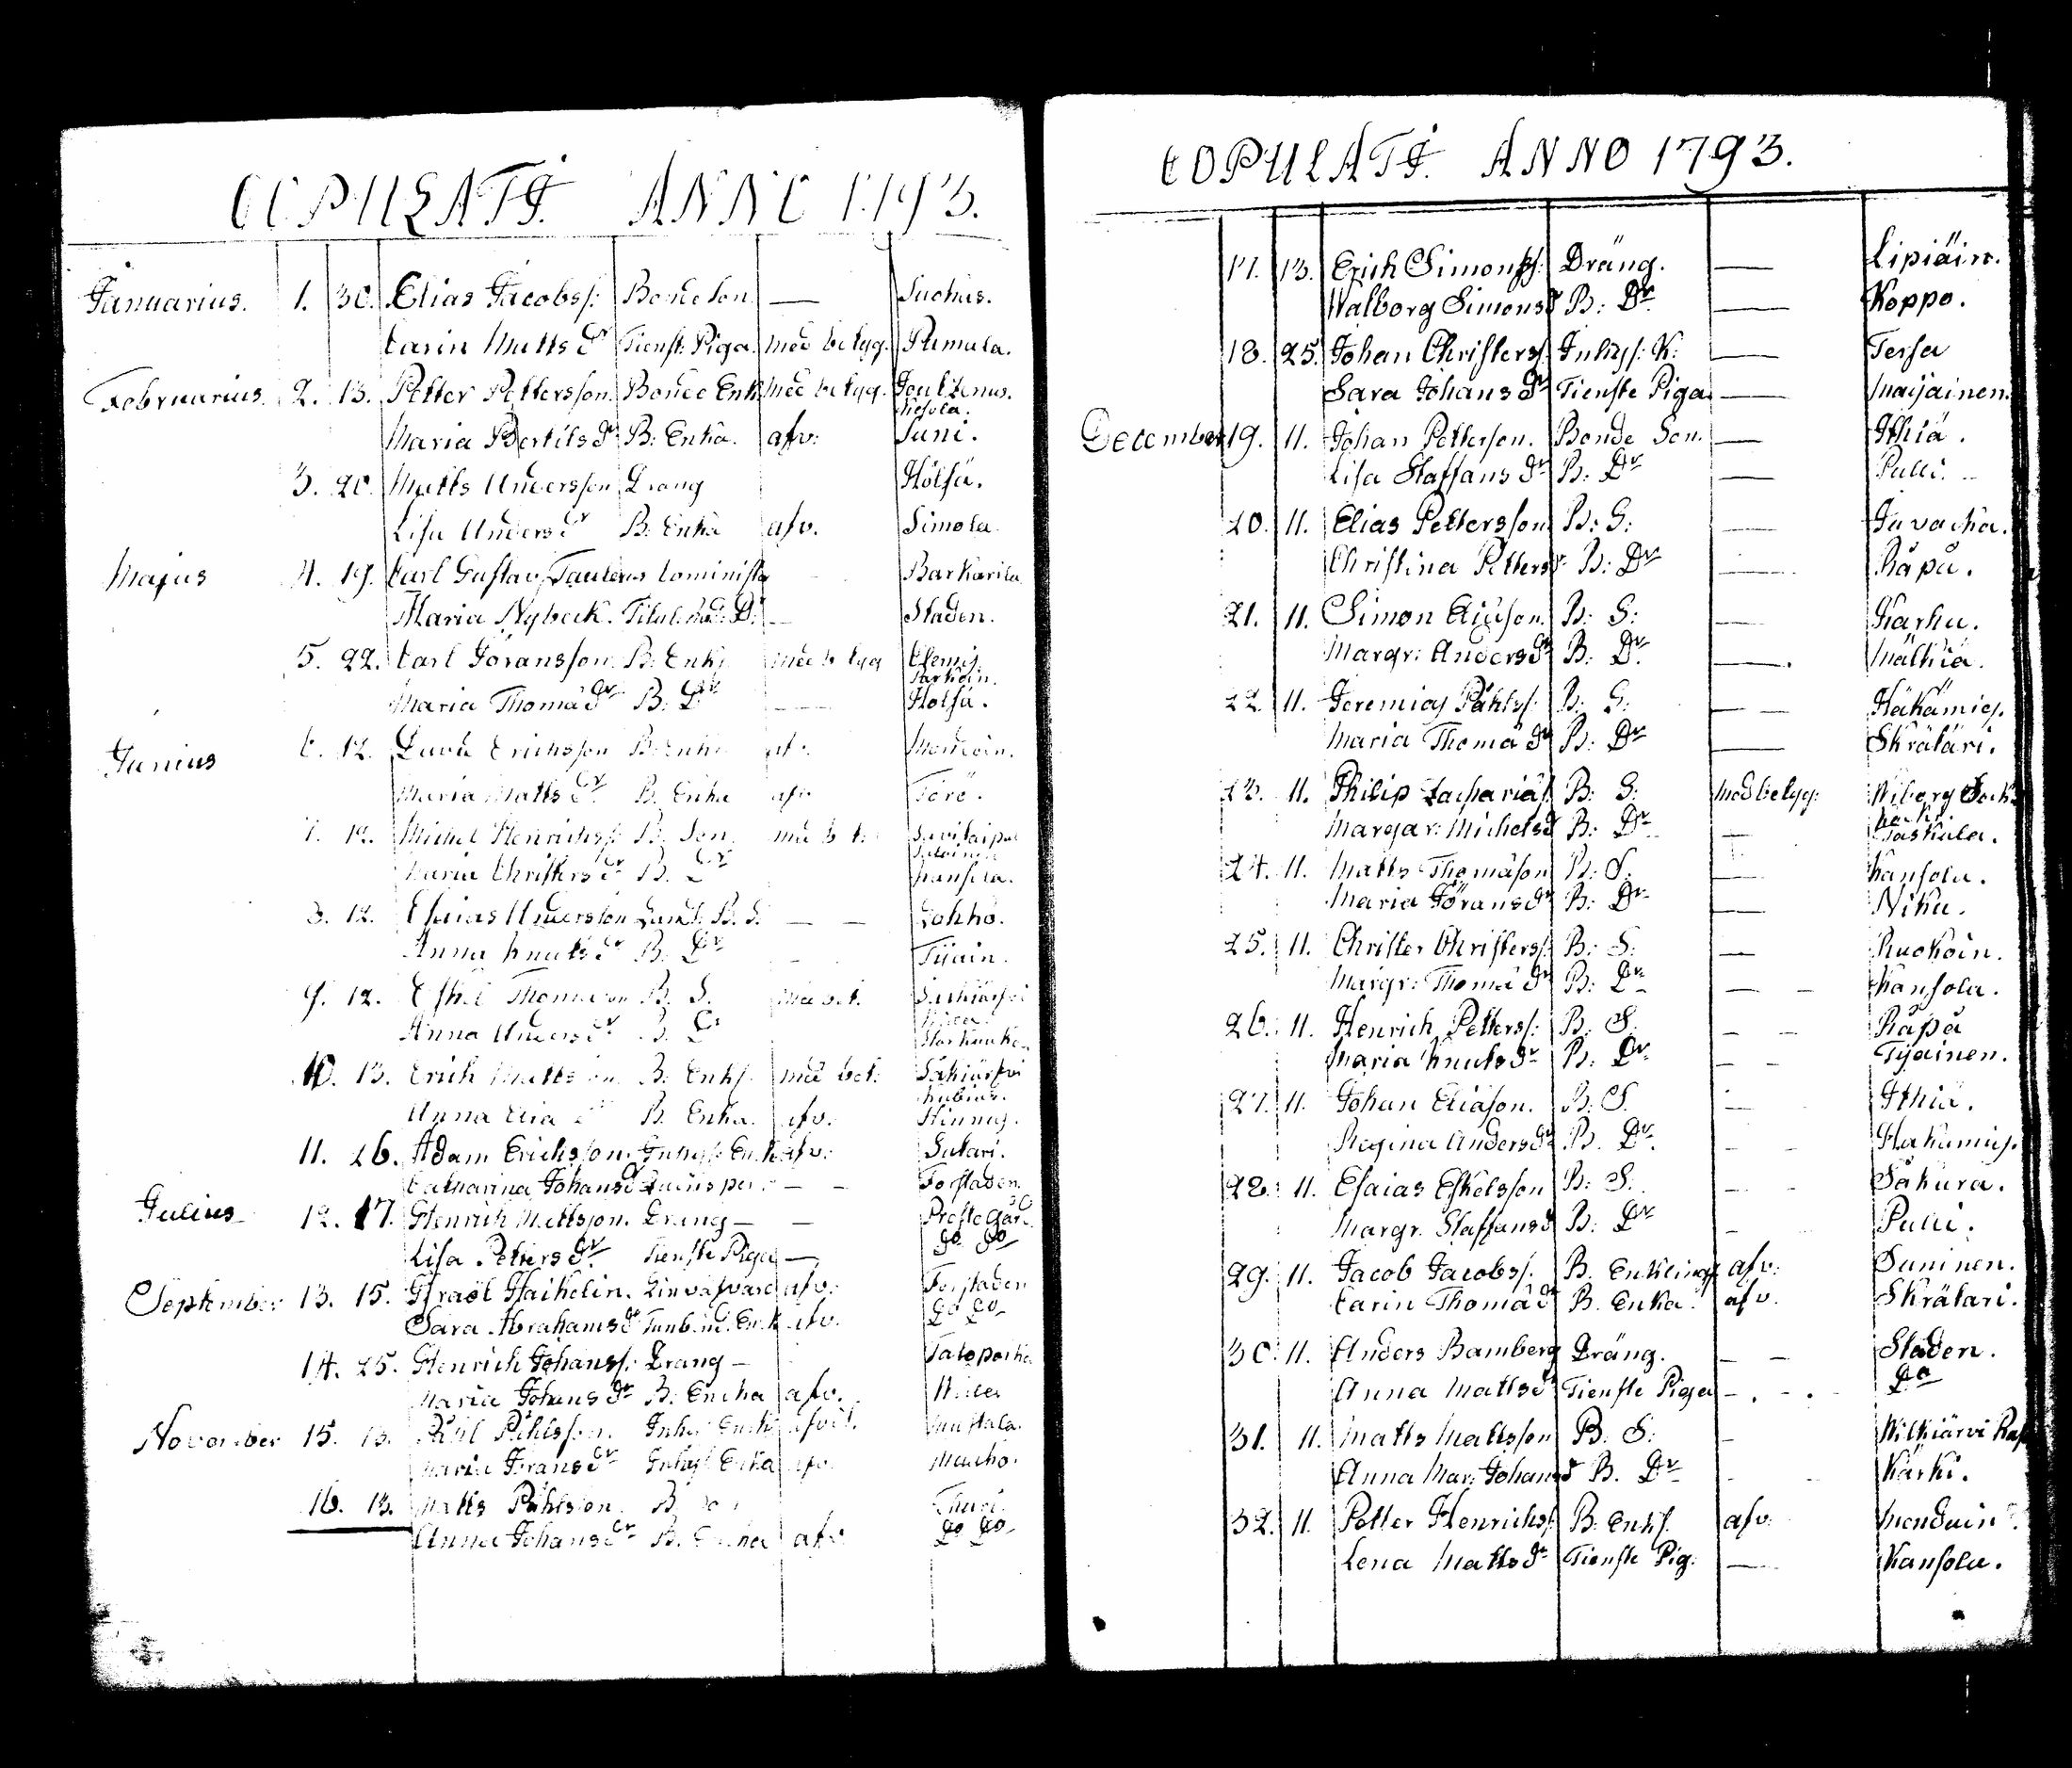 COPULATI. ANNO 1793.
Januarius. 1. 30. Elias Jacobss: Bonde Son. — Suokas.
Carin Matts dr Tienst: Piga. med betyg. Pumala.
Februarius. 2. 13. Petter Pettersson. Bonde Enk med betyg. Joutzenus.
Maria Bertils dr B: Enka. afv: Suni.
3. 20. Matts Andersson Drang Hölsä.
Lisa Anders dr B. Enka afv. Simola.
Majus 4. 19. Carl Gustav Cominister Barkarila
Maria Nybeck. Titul. Dr. — Staden.
5. 22. Carl Göransson B: Enk. med betyg Clemis.
Maria Thomä dr B: Dr — Holsä.
Junius 6. 12. David Erichsson B: Enk: af: Mondoin.
Maria Matts dr. B. Enka afv. Törö.
7. 12. Michel Henrichss: B. Son. med bet: Savitaipal
Maria Christers dr B. Dr Kansola.
8. 12. Esaias Andersson Landt. B. S. — — Lohko.
Anna Knuts dr B. Dr — Tijain.
9. 12. Eskel Thomason B. S. med bet. Säckjärfvi
Anna Anders dr B. Dr
10. 13. Erich Matts son B: Enk. med bet: Säkiärfvi
Anna Elia dr B. Enka. afv. Hinnus.
11. 26. Adam Erichsson. Inhys: Enk afv: Sutari.
Catharina Johans dr — — Forstaden.
Julius 12. 17. Henrich Mattsson. Drang — — Prostegård.
Lisa Petters dr. Tienste Piga — do do
September 13. 15. Israel Haikelin. Linvafvare afv: Forstaden
Sara Abrahams dr Enk afv. do do
14. 25. Henrich Johanss: Drang —
Maria Johans dr B: Encka afv.
November 15. 13. Påhl Påhlsson. Inhys Enk afvit. Mustala.
Maria Jörans dr Inhys Enka afv. Muuko.
16. 13. Matts Påhlsson. B. Son Thuri.
Anna Johans dr B. Encka afv. do do
COPULATI. ANNO 1793.
17. 13. Erich Simonss: Dräng. — Lipiäin.
Walborg Simons dr B: Dr — Koppo.
18. 25. Johan Christerss: Inhys: K: — Tersa
Sara Johans dr Tienste Piga — Maijainen.
December 19. 11. Johan Petterson. Bonde Son. — Ithiä.
Lisa Staffans dr B: Dr — Pulli.
20. 11. Elias Pettersson B: S: —
Christina Petters dr B: Dr — Räpä.
21. 11. Simon B: S: — Karhu.
Margr: Anders dr B: Dr. — Mälkiä.
22. 11. Jeremias Påhlss: B: S: — Häkämies.
Maria Thomä dr B: Dr — Skrätäri.
23. 11. Philip Zachariäs. B: S: med betyg: Wiborg Sock
Margar: Michels dr B: Dr — Taskula.
24. 11. Matts Thomäson B: S: — Kansola.
Maria Jörans dr B: Dr — Nika.
25. 11. Christer Christerss: B: S: — Ruokoin.
Margr: Thomä dr B: Dr — — Kansola.
26. 11. Henrich Petterss: B: S. — — Räpä
Maria Knuts dr B: Dr — — Tijainen.
27. 11. Johan Eliäson. B: S. — Ithiä.
Regina Anders dr B. Dr. — — Hakamies.
28. 11. Esaias Eskelsson B: S. — — Säkura.
Margr. Staffans dr B: Dr — Pulli.
29. 11. Jacob Jacobss. B. Enkling afv: Suninen.
Carin Thomä dr B. Enka. afv. Skrätari.
30. 11. Anders Bamberg Dräng. — — Staden.
Anna Matts dr Tienste Piga — . — . do
31. 11. Matts Mattsson B: S: —
Anna Mar: Johans dr B. Dr — — Kärki.
32. 11. Petter Henrichss: B: Enkl. afv: Monduin
Lena Matts dr Tienste Pig: — Kansola.